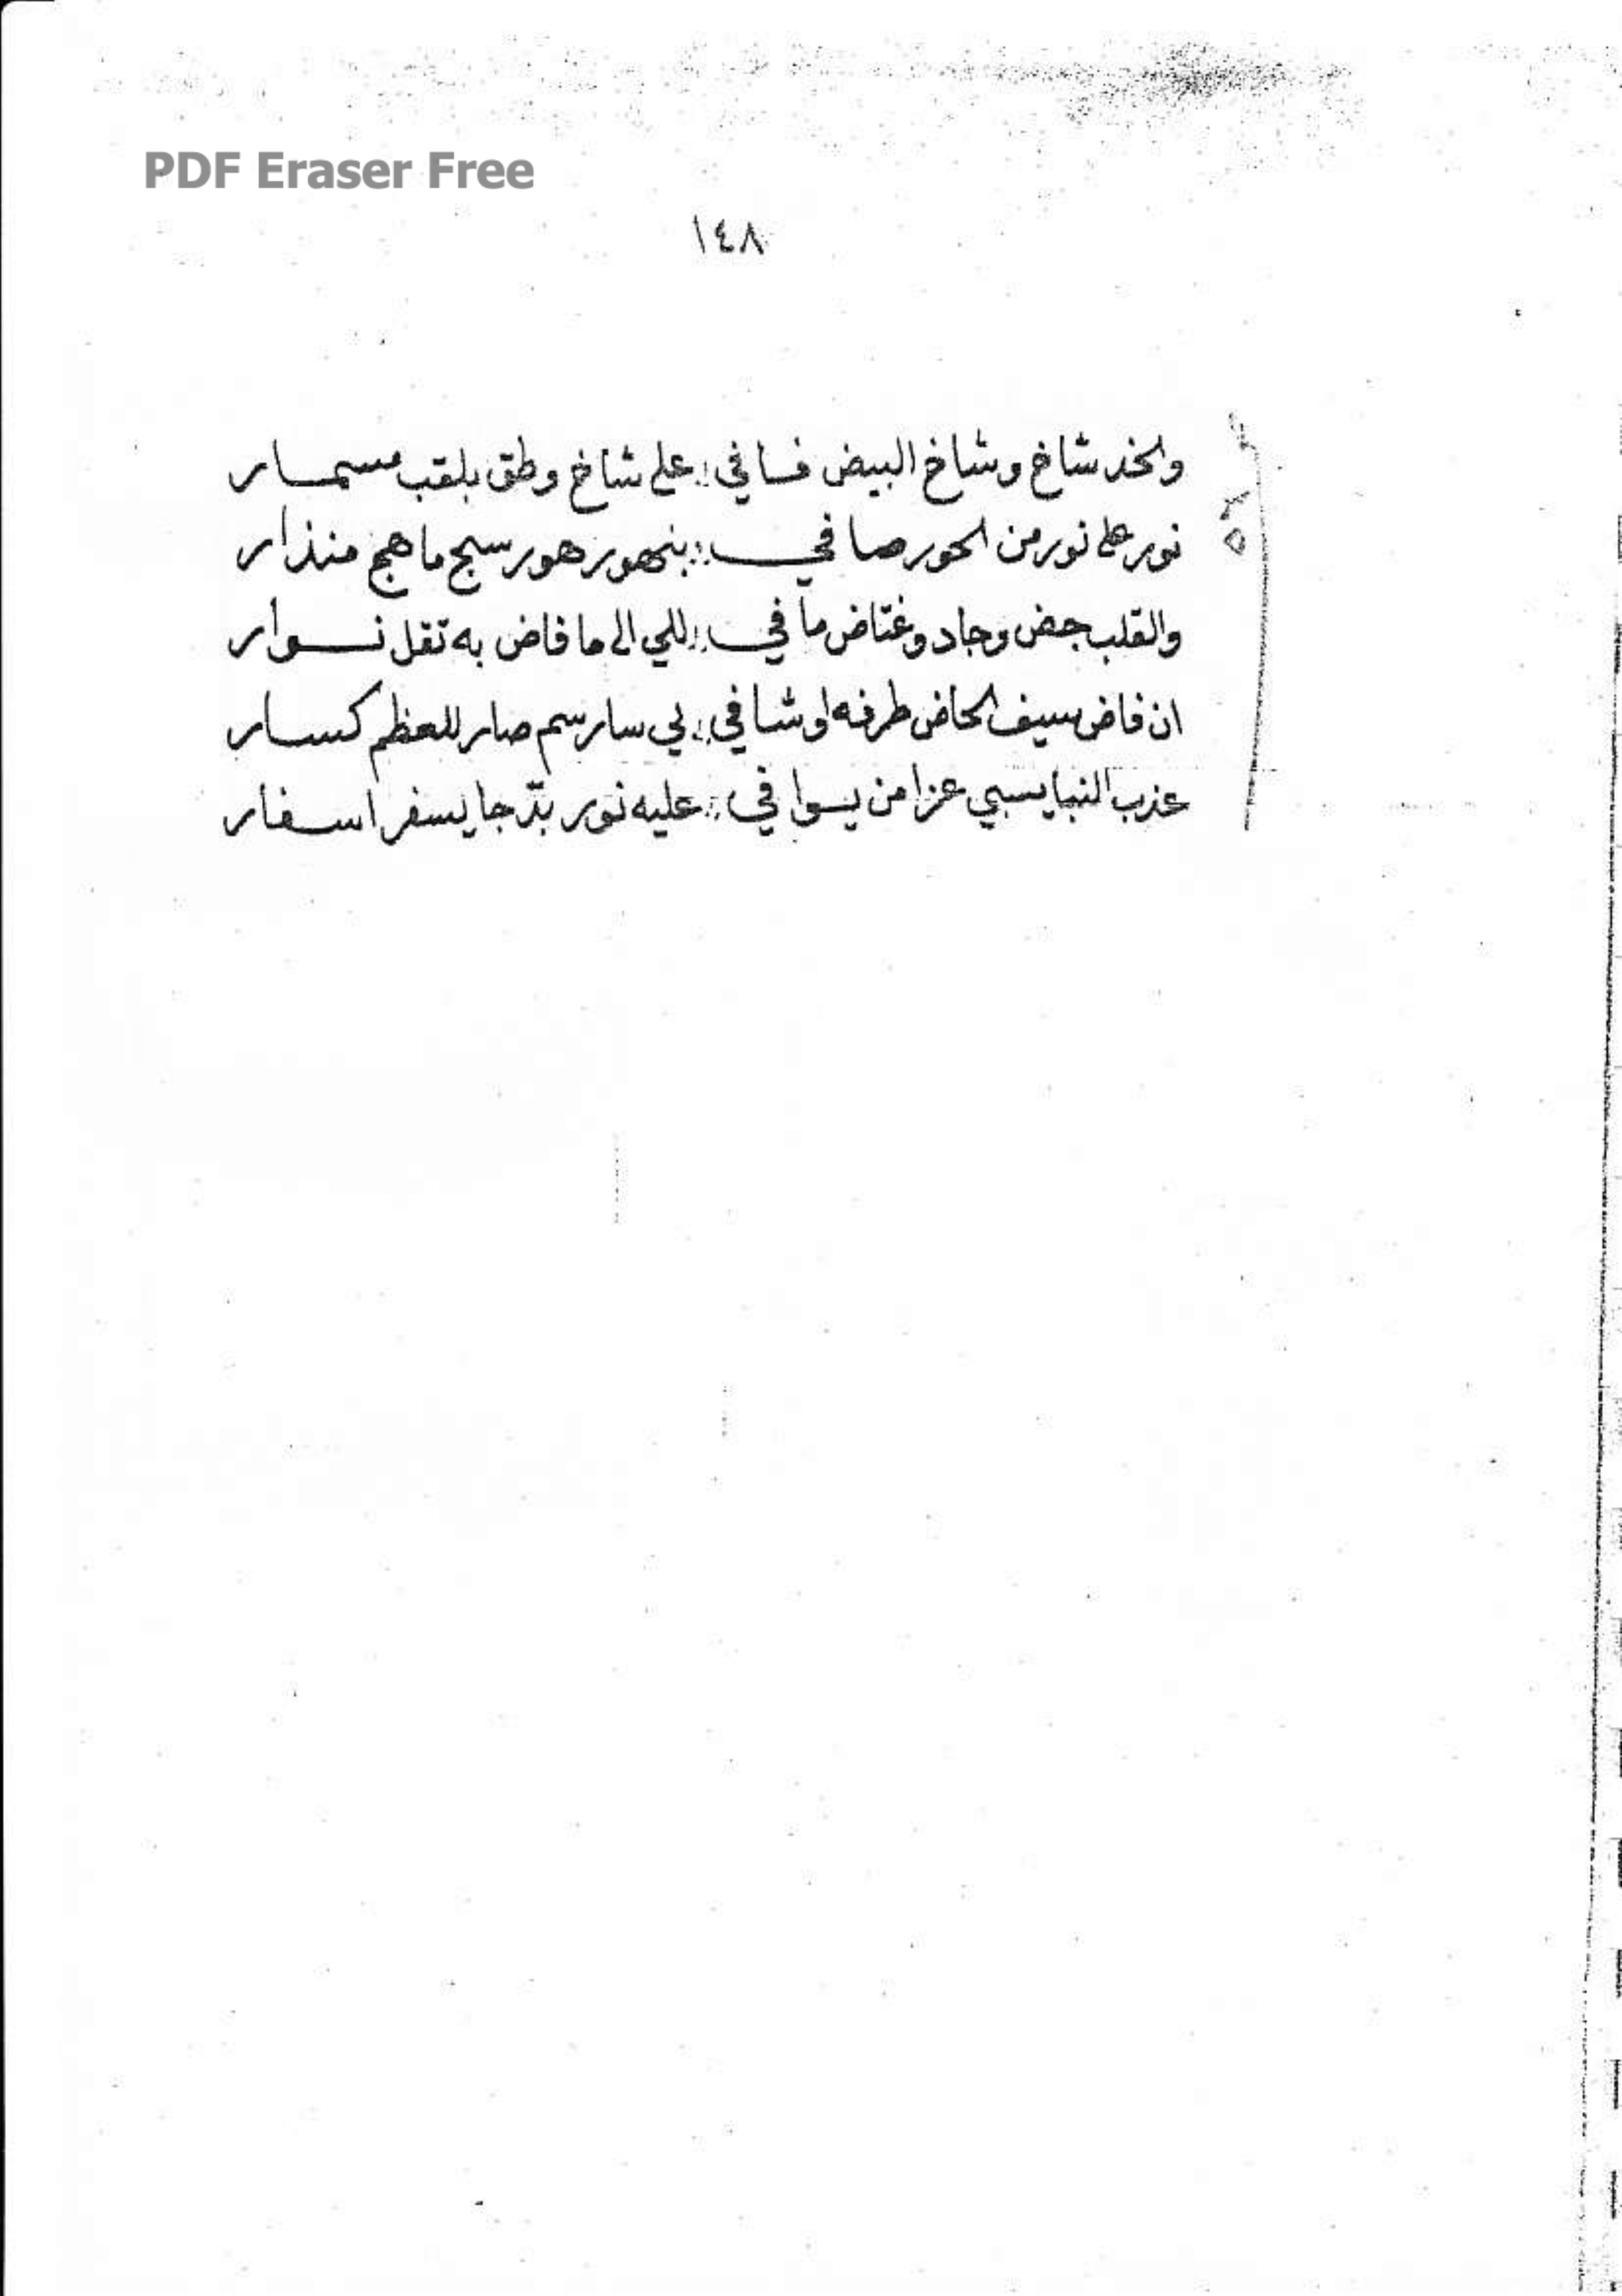 PDF Eraser Free
١٤٨
والخد شاخ وشاخ البيض فسافي :: على شاخ وطق بلقب مسمار
نور على نور من الحور صافي :: بنحور هور سبج ما هج منذار
والقلب جض وجاد وغتاض مافي :: للي الى ما فاض به تقل نوار
ان فاض سيف الحاض طرفه اوشافي :: لي سار سم صار للعظم كسار
عذب النبا يسبي عزا من يوافي :: عليه نور بدّجا يسفر اسفار